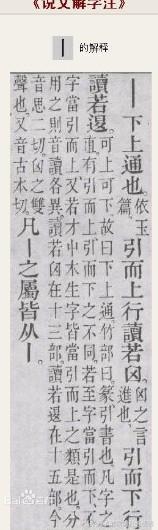 《说文解字注》
丨 的解释
丨下上通也。依玉篇。引而上行讀若囟。囟之言進也。引而下行
讀若𨓤。可上可下故曰下上通竹部曰篆引書也凡字之
直有引而上引而下之不同若至字當引而下不
字當引而上又若才中木生字皆當引而上之類是也分
用之則音讀各異讀若囟在十三部讀若𨓤在十五部今
音思二切囟之雙
聲也又音古本切。凡丨之屬皆从丨。